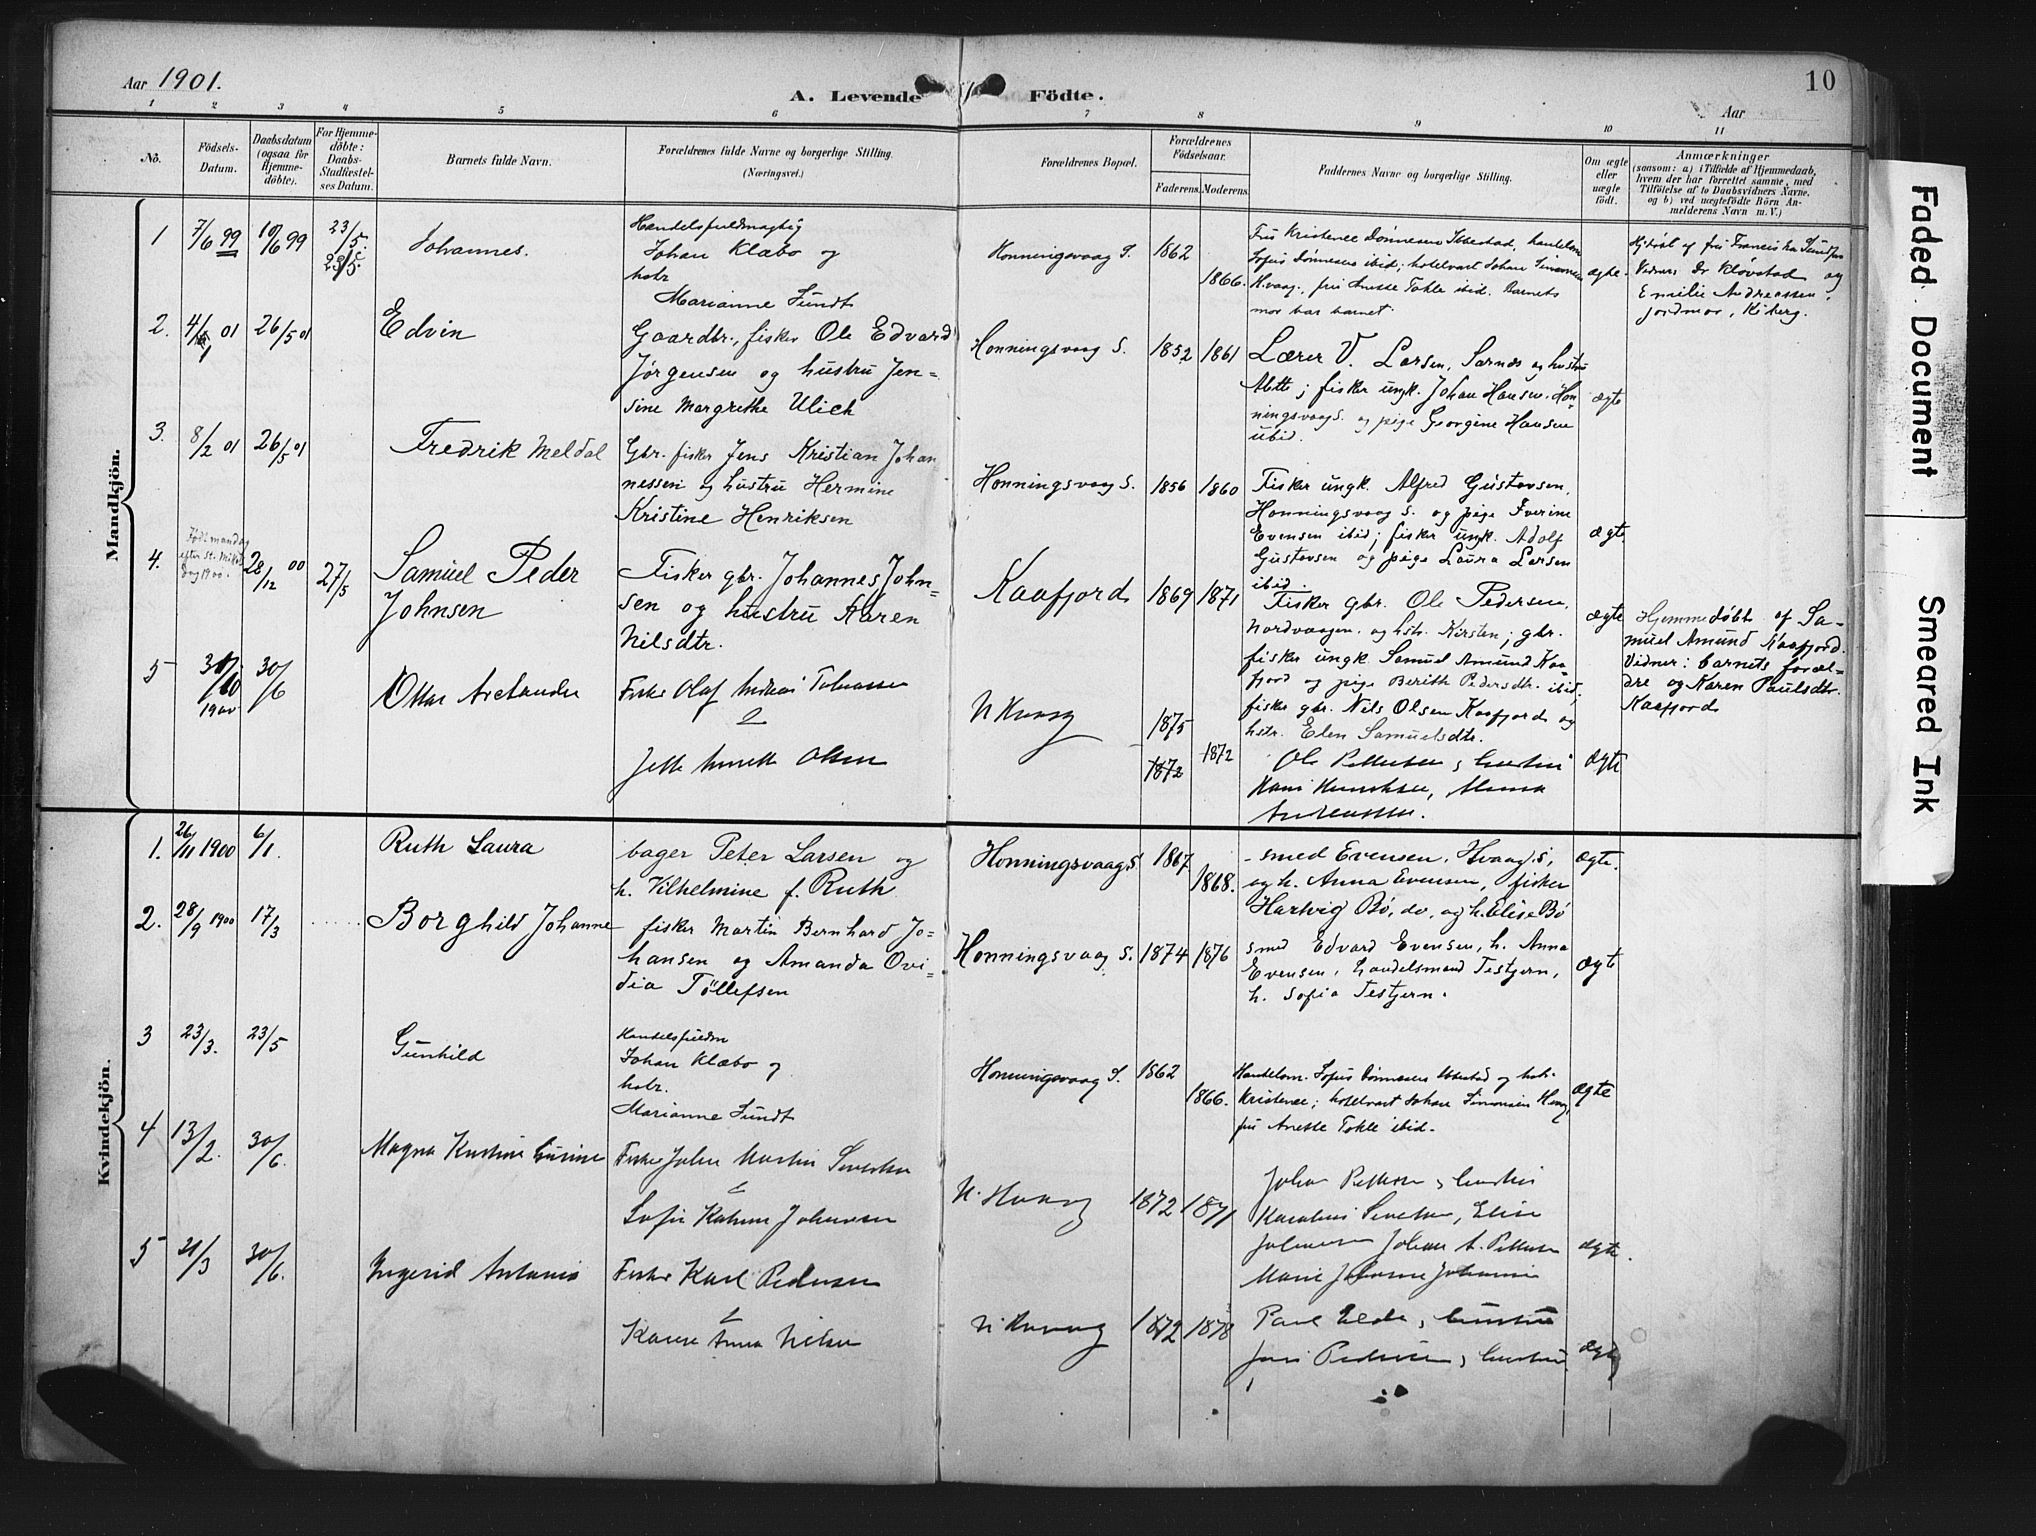 Aar 1901.
A. Levende Födte.
10
Aar
1 2 3 4 5 6 7 8 9 10 11
No.
Födsels-
Datum.
Daabsdatum
(ogsaa for
Hjemme-
döbte).
For Hjemme-
döbte:
Daabs-
Stadfæstel-
ses Datum.
Barnets fulde Navn.
Forældrenes fulde Navne og borgerlige Stilling.
(Næringsvei.)
Forældrenes Bopæl.
Forældrenes
Födselsaar.
Faderens. Moderens.
Faddernes Navne og borgerlige Stilling.
Om ægte
eller
uægte
født.
Anmærkninger
(saasom: a) i Tilfælde af Hjemmedaab,
hvem der har forrettet samme, med
Tilföielse af to Daabsvidners Navne.
og b) ved uægtefödte Börn An-
melderens Navn m. V.)
Mandkjön.
1 7/6 99 10/6 99 23/5
23/5.
Johannes.
Handelsfuldmægtig
Johan Klæbo og
hstr
Marianne Sundt
Honningsvaag S. 1862
1866.
Fru Kristence Dønnesen Ibbestad, handelsm
Sofus Dønnesen ibid; hotelvært Johan Simonsen
Hvaag., fru Anette Tokle ibid. Barnets
mor bar barnet.
ægte
Hjdøbt af fru Francis ka Sundfær
Vidner Dr Kløvstad og
Emilie Andreassen,
jordmor, Kiberg.
2. 4/ 01 26/5 01
Edvin
Gaardbr., fisker Ole Edvard
Jørgensen og hustru Jen-
sine Margrethe Ulich
Honningsvaag S. 1852 1861
Lærer V. Larsen, Sarnes og hustru
Mette; fisker ungk. Johan Hansen Hon-
ningsvaag S. og pige Georgine Hansen
ibid.
ægte
3. 8/2 01 26/5 01
Fredrik Meldal
Gbr. fisker Jens Kristian Johan
nessen og hustru Hermine
Kristine Henriksen
Honningsvaag S. 1856 1860
Fisker ungk. Alfred Gustavsen,
Honningsvaag S. og pige Iverine
Evensen ibid; fisker ungk. Adolf
Gustavsen og pige Laura Larsen
ibid.
ægte
4. Født mandag
efter St. Mikels
dag 1900.
28/12 00 27/5
Samuel Peder
Johnsen
Fisker gbr. Johannes John-
sen og hustru Karen
Nilsdtr.
Kaafjord 1869 1871
Fisker gbr. Ole Pedersen,
Nordvaagen. og hstr. Kirsten; gbr.
fisker ungk. Samuel Amund Kaa
fjord og pige Berith Pedersdtr. ibid;
fisker gbr. Nils Olsen Kaafjord og
hstr. Elen Samuelsdtr.
ægte
Hjemmedøbt af Sa-
muel Amund Kaafjord.
Vidner: barnets foræl-
dre og Karen Paulsdtr.
Kaafjord
5 /10
1900 30/6
Ottar
Fisker Olaf Andreas
&
Jette Anette Olsen
1875
1872 1872
Ole Pettersen, hustru
Hans Henriksen,
Andreassen.
ægte
Kvindekjön.
1. 26/11 1900 6/1.
Ruth Laura
bager Peter Larsen og
h. Vilhelmine f. Ruth
Honningsvaag S. 1867
1868.
smed Evensen, Hvaag S,
og h. Anna Evensen, fisker
Hartvig Bø, do, og h. Elise Bø
ægte.
2. 28/9 1900 17/3
Borghild Johanne
fisker Martin Bernhard Jo-
hansen og Amanda Ovi-
dia Tøllefsen
Honningsvaag S. 1874 1876
smed Edvard Evensen, h. Anna
Evensen, handelsmand Testjern,
h. Sofia Testjern.
ægte
3 23/3. 23/5
Gunhild
Handelsfuldm
Johan Klæbo og
hstr.
Marianne Sundt
Honningsvaag S. 1862
1866.
Handelsm. Sofus Dønnesen Ibbestad og
Kristence; hotelvært Johan Simonsen Hvaag,
fru Anette Tokle ibid.
ægte
4 13/2. 30/6.
Magna Kristine
Fisker Johan Martin Sivertsen
&
Sofie Johansen
1872 1871
Johan Pettersen, hustru
Sivertsen, Elise
Johansen Johan A. Pettersen
Marie Johanne
ægte.
5 21/3 30/6.
Ingerid Antonie
Fisker Karl Pedersen
&
Anna Nilsen
1872 1878
Paul, hustru
Pedersen, hustru
ægte
Faded Document
Smeared Ink